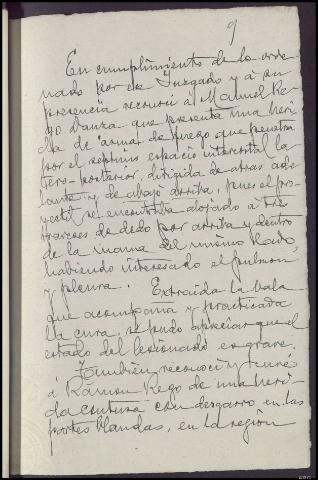 9
En cumplimiento de lo orde
nado por ese Juzgado y á su
presencia reconocí á Manuel Re
go Danza que presenta una heri
da de arma de fuego que penetra
por el septimo espacio intercostal la
tero-posterior, dirigida de atras ade
lante y de abajo arriba, pues el pro
yectil se encontraba alojado á tres
traveses de dedo por arriba y dentro
de la mama del mismo lado,
habiendo interesado el pulmon
y pleura. Extraida la bala
que acompaña y practicada
la cura, se pudo apreciar que el
estado del lesionado es grave.
Tambien reconocí y curé
á Ramon Rego de una heri
da contusa con desgarro en las
partes blandas, en la región